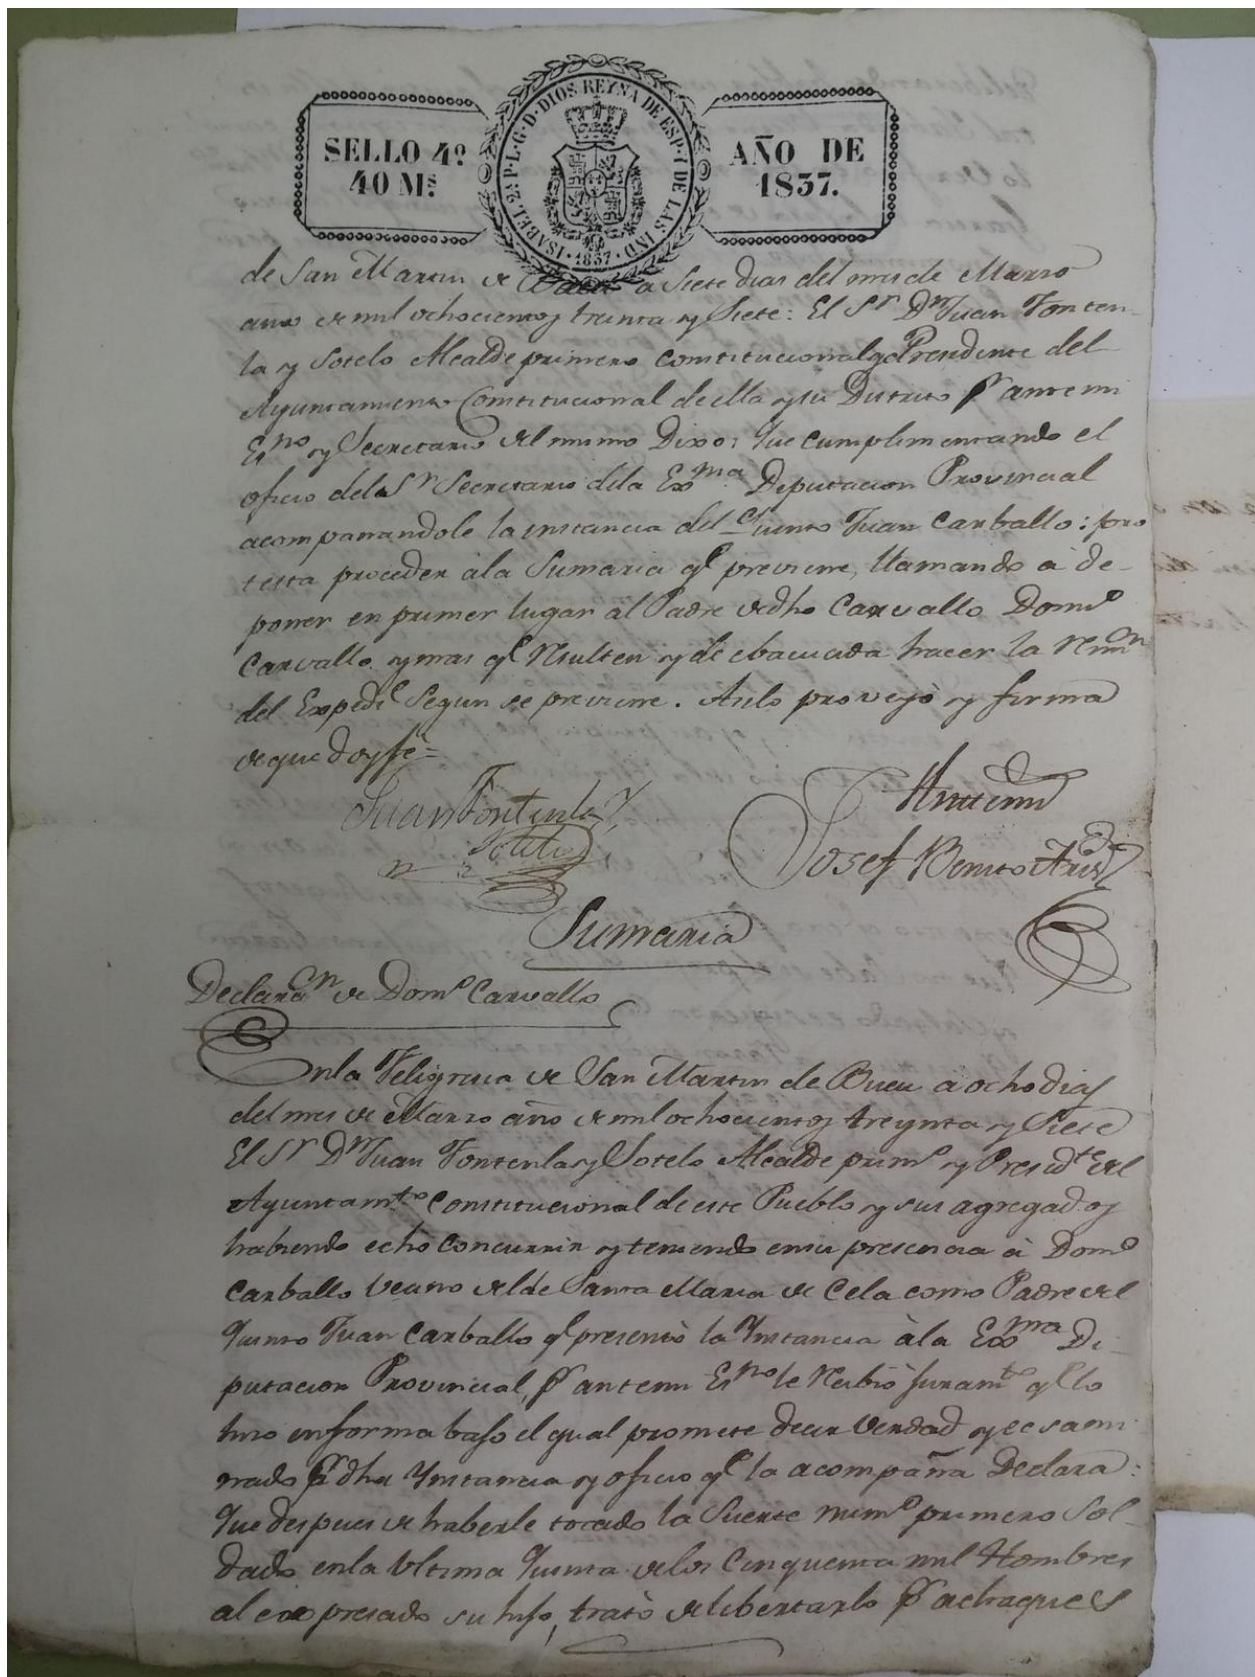 SELLO 4º
40 Mˢ.
ISABEL 2ª P. L. G. D. DIOS REYNA DE ESP. Y DE LAS IND.
1837
AÑO DE
1837.
de San Martin de a Siete dias del mes de Marzo
año de mil ochocientos treinta y Siete: El Sʳ Dⁿ Juan Fonten-
la y Sotelo Alcalde primero constitucional y Presidente del
Ayuntamiento Constitucional de ella y su Distrito pʳ ante mi
Esⁿᵒ y Secretario del mismo Dixo: Que cumplimentando el
oficio del Sʳ Secretario dela Exᵐᵃ Diputacion Provincial
acompañandole la instancia del Quinto Juan Carballo: pro
testa proceder àla Sumaria qᵉ previene, llamando à de-
poner en primer lugar al Padre de dho Carvallo Domᵒ
Carvallo y mas qᵉ Resulten y de ebacuada hacer la
del Expedᵉ Segun se previene. Asilo proveyò y firma
de que doy fè=
Juan Fontenla y
Sotelo
Antemi
Josef Benito
Sumaria
Declaraᶜⁿ de Domᵒ Carvallo
Enla Feligresia de San Martin de Bueu a ocho dias
del mes de Marzo año de mil ochocientos treynta y Siete
El Sʳ Dⁿ Juan Fontenla y Sotelo Alcalde primᵒ y Presidᵗᵉ del
Ayuntamᵗᵒ Constitucional de este Pueblo y sus agregados
habiendo echo concurrir y teniendo en su presencia à Domᵒ
Carballo Vecino del de Santa Maria de Cela como Padre del
Quinto Juan Carballo qᵉ presentò la Ynstancia àla Exᵐᵃ Di-
putacion Provincial, pʳ antemi Esⁿᵒ le Recibiò juramᵗᵒ qᵉ lo
hizo en forma bajo el qual promete decir Verdad y ecsami
nado pʳ dha Ynstancia y oficio qᵉ la acompaña Declara:
Que despues de haberle tocado la Suerte numᵒ primero Sol-
dado enla Ultima Quinta delos Cinquenta mil Hombres
al expresado su hijo, tratò de libertarlo pʳ achaques